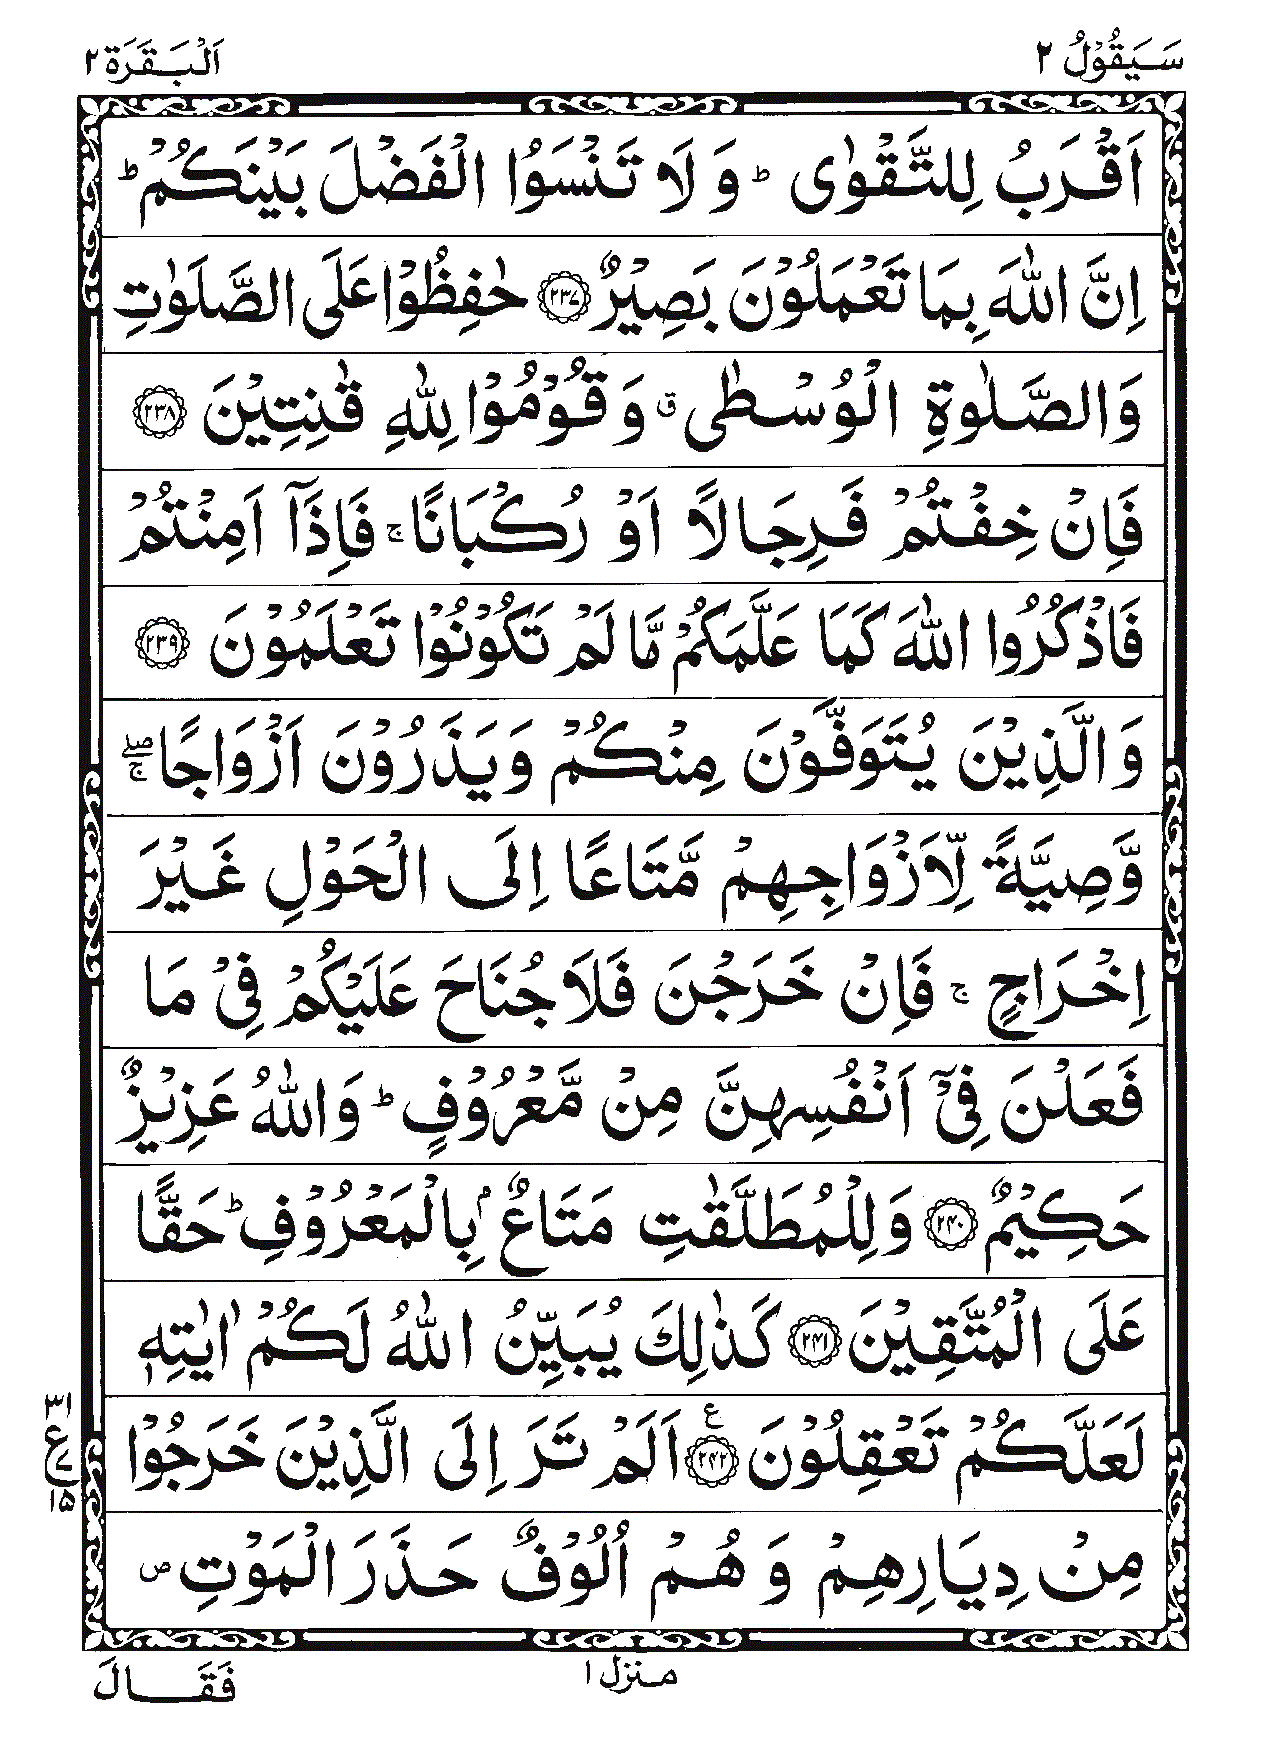 سَيَقُوْلُ ٢
اَلْبَقَرَة ٢
اَقْرَبُ لِلتَّقْوٰى ؕ وَ لَا تَنْسَوُا الْفَضْلَ بَيْنَكُمْ ؕ
اِنَّ اللّٰهَ بِمَا تَعْمَلُوْنَ بَصِيْرٌ ﴿٢٣٧﴾ حٰفِظُوْا عَلَى الصَّلَوٰتِ
وَالصَّلٰوةِ الْوُسْطٰى ۗ وَ قُوْمُوْا لِلّٰهِ قٰنِتِيْنَ ﴿٢٣٨﴾
فَاِنْ خِفْتُمْ فَرِجَالًا اَوْ رُكْبَانًا ۚ فَاِذَآ اَمِنْتُمْ
فَاذْكُرُوا اللّٰهَ كَمَا عَلَّمَكُمْ مَّا لَمْ تَكُوْنُوْا تَعْلَمُوْنَ ﴿٢٣٩﴾
وَالَّذِيْنَ يُتَوَفَّوْنَ مِنْكُمْ وَيَذَرُوْنَ اَزْوَاجًا ۖۚ
وَّصِيَّةً لِّاَزْوَاجِهِمْ مَّتَاعًا اِلَى الْحَوْلِ غَيْرَ
اِخْرَاجٍ ۚ فَاِنْ خَرَجْنَ فَلَا جُنَاحَ عَلَيْكُمْ فِىْ مَا
فَعَلْنَ فِىْٓ اَنْفُسِهِنَّ مِنْ مَّعْرُوْفٍ ؕ وَاللّٰهُ عَزِيْزٌ
حَكِيْمٌ ﴿٢٤٠﴾ وَلِلْمُطَلَّقٰتِ مَتَاعٌ ۢ بِالْمَعْرُوْفِ ؕ حَقًّا
عَلَى الْمُتَّقِيْنَ ﴿٢٤١﴾ كَذٰلِكَ يُبَيِّنُ اللّٰهُ لَكُمْ اٰيٰتِهٖ
لَعَلَّكُمْ تَعْقِلُوْنَ ﴿٢٤٢﴾ ع اَلَمْ تَرَ اِلَى الَّذِيْنَ خَرَجُوْا
٣١
ع ٧
١٥
مِنْ دِيَارِهِمْ وَ هُمْ اُلُوْفٌ حَذَرَ الْمَوْتِ ص
منزل ١
فَقَالَ